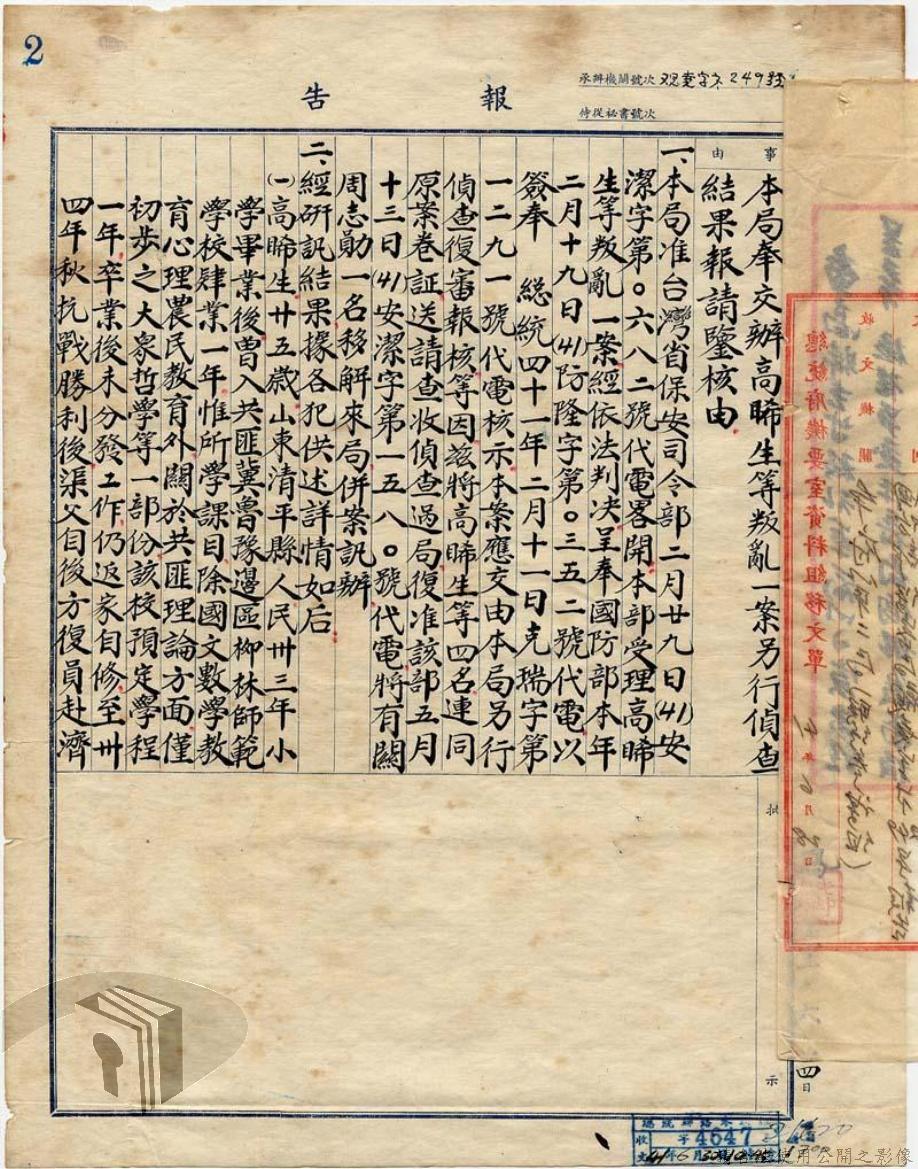 2
承辦機關號次 觀童字第249號
侍從祕書號次
報告
事由
本局奉交辦高睎生等叛亂一案另行偵查
結果報請鑒核由
一、本局准台灣省保安司令部二月廿九日(41)安
潔字第〇六八二號代電畧開本部受理高睎
生等叛亂一案經依法判决呈奉國防部本年
二月十九日(41)防隆字第〇三五二號代電以
簽奉 総統四十一年二月十一日克瑞字第
一二九一號代電核示本案應交由本局另行
偵查復審報核等因茲將高睎生等四名連同
原案卷証送請查收偵查過局復准該部五月
十三日(41)安潔字第一五八〇號代電將有關
周志勛一名移解來局併案訊辦
二、經研訊結果據各犯供述詳情如后
(一)高睎生廿五歲山東清平縣人民卅三年小
學畢業後曾入共匪冀魯豫邊區柳林師範
學校肄業一年惟所學課目除國文數學教
育心理農民教育外關於共匪理論方面僅
初步之大衆哲學等一部份該校預定學程
一年卒業後未分發工作仍返家自修至卅
四年秋抗戰勝利後渠父自後方復員赴濟
批示
收文機關
總統府機要室資料組移文單
年 月 日
四日
收文
字
4647
使用公開之影像